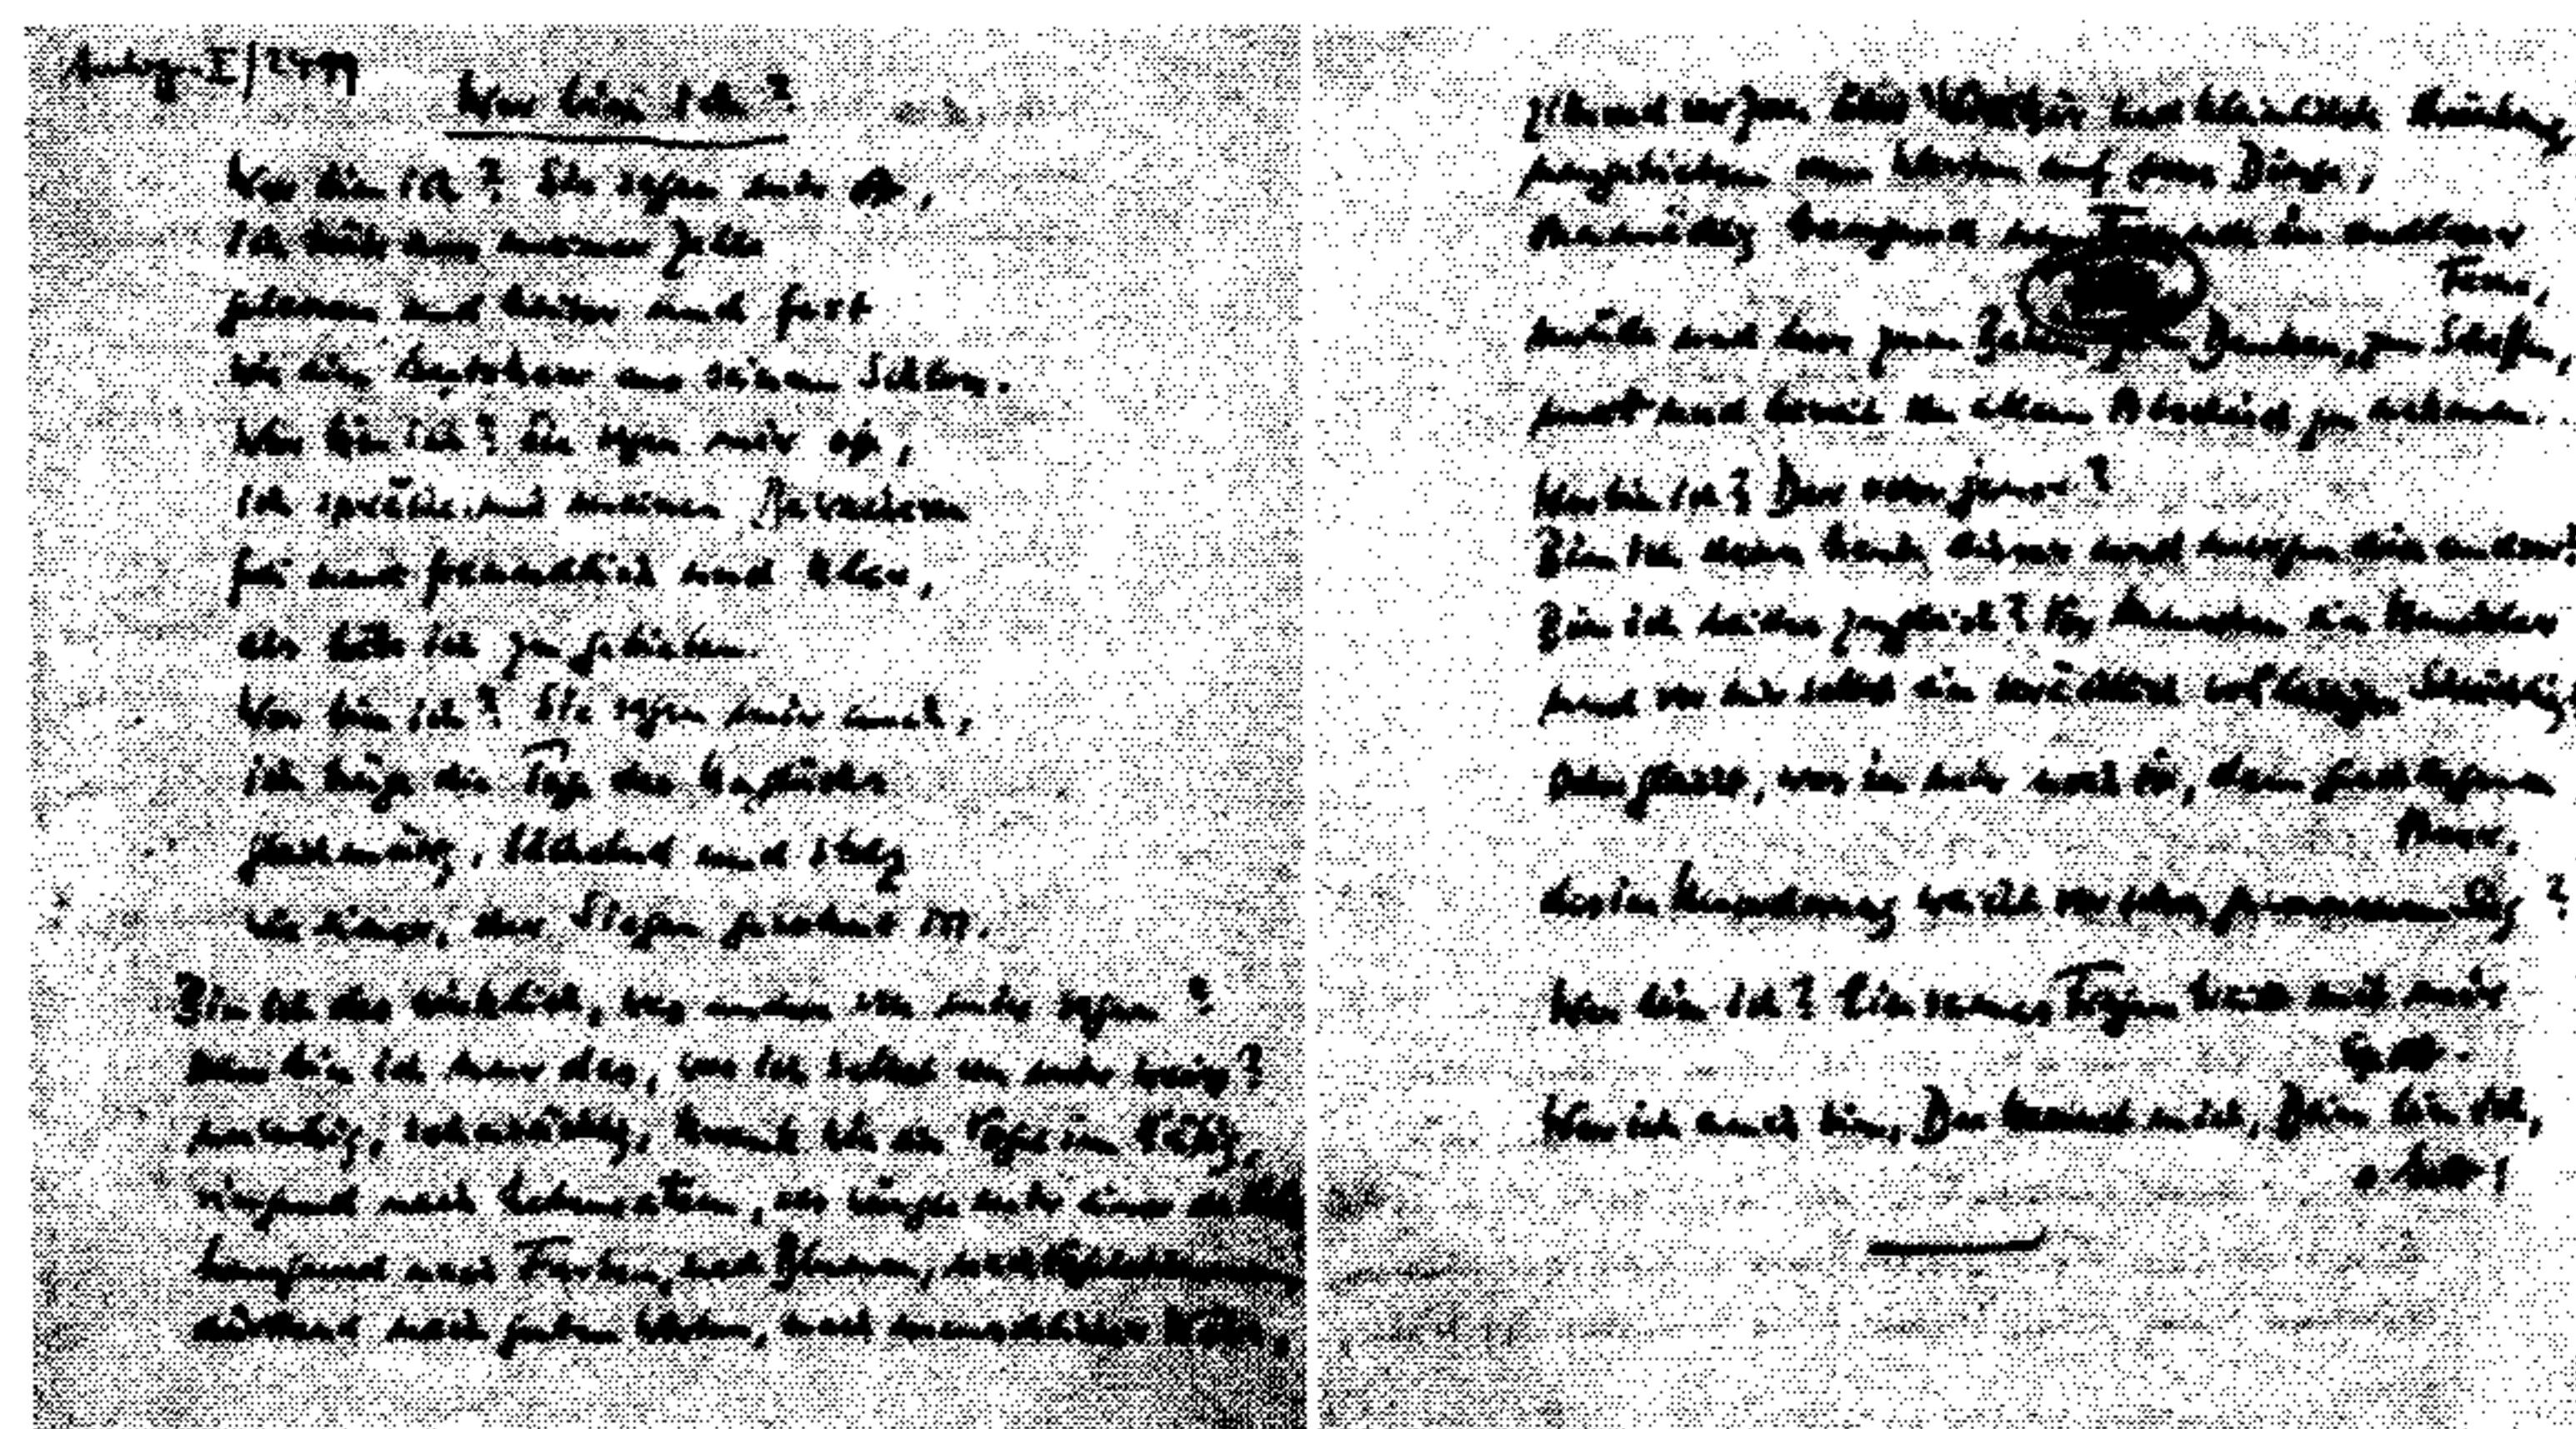 Autogr. I/2499
Wer bin ich?
Wer bin ich? Sie sagen mir oft,
ich träte aus meiner Zelle
gelassen und heiter und fest
wie ein Gutsherr aus seinem Schloss.
Wer bin ich? Sie sagen mir oft,
ich spräche mit meinen Bewachern
frei und freundlich und klar,
als hätte ich zu gebieten.
Wer bin ich? Sie sagen mir auch,
ich trüge die Tage des Unglücks
gleichmütig, lächelnd und stolz
wie einer, der Siegen gewohnt ist.
Bin ich das wirklich, was andere von mir sagen?
Oder bin ich nur das, was ich selbst von mir weiss?
unruhig, sehnsüchtig, krank wie ein Vogel im Käfig,
ringend nach Lebensatem, als würge mir einer die
hungernd nach Farben, nach Blumen, nach
dürstend nach guten Worten, nach menschlicher Nähe,
zitternd vor Zorn über Willkür und kleinlichste Kränkung,
umgetrieben vom Warten auf grosse Dinge,
ohnmächtig bangend um Freunde in endloser
Ferne,
müde und leer zum Beten, zum Denken, zum Schaffen,
matt und bereit von allem Abschied zu nehmen.
Wer bin ich? Der oder jener?
Bin ich denn heute dieser und morgen ein andrer?
Bin ich beides zugleich? Vor Menschen ein Heuchler
und vor mir selbst ein verächtlich wehleidiger Schwächling?
Oder gleicht, was in mir noch ist, dem geschlagenen
Heer,
das in Unordnung weicht vor schon gewonnenem Sieg?
Wer bin ich? Einsames Fragen treibt mit mir
Spott.
Wer ich auch bin, Du kennst mich, Dein bin ich,
o Gott!